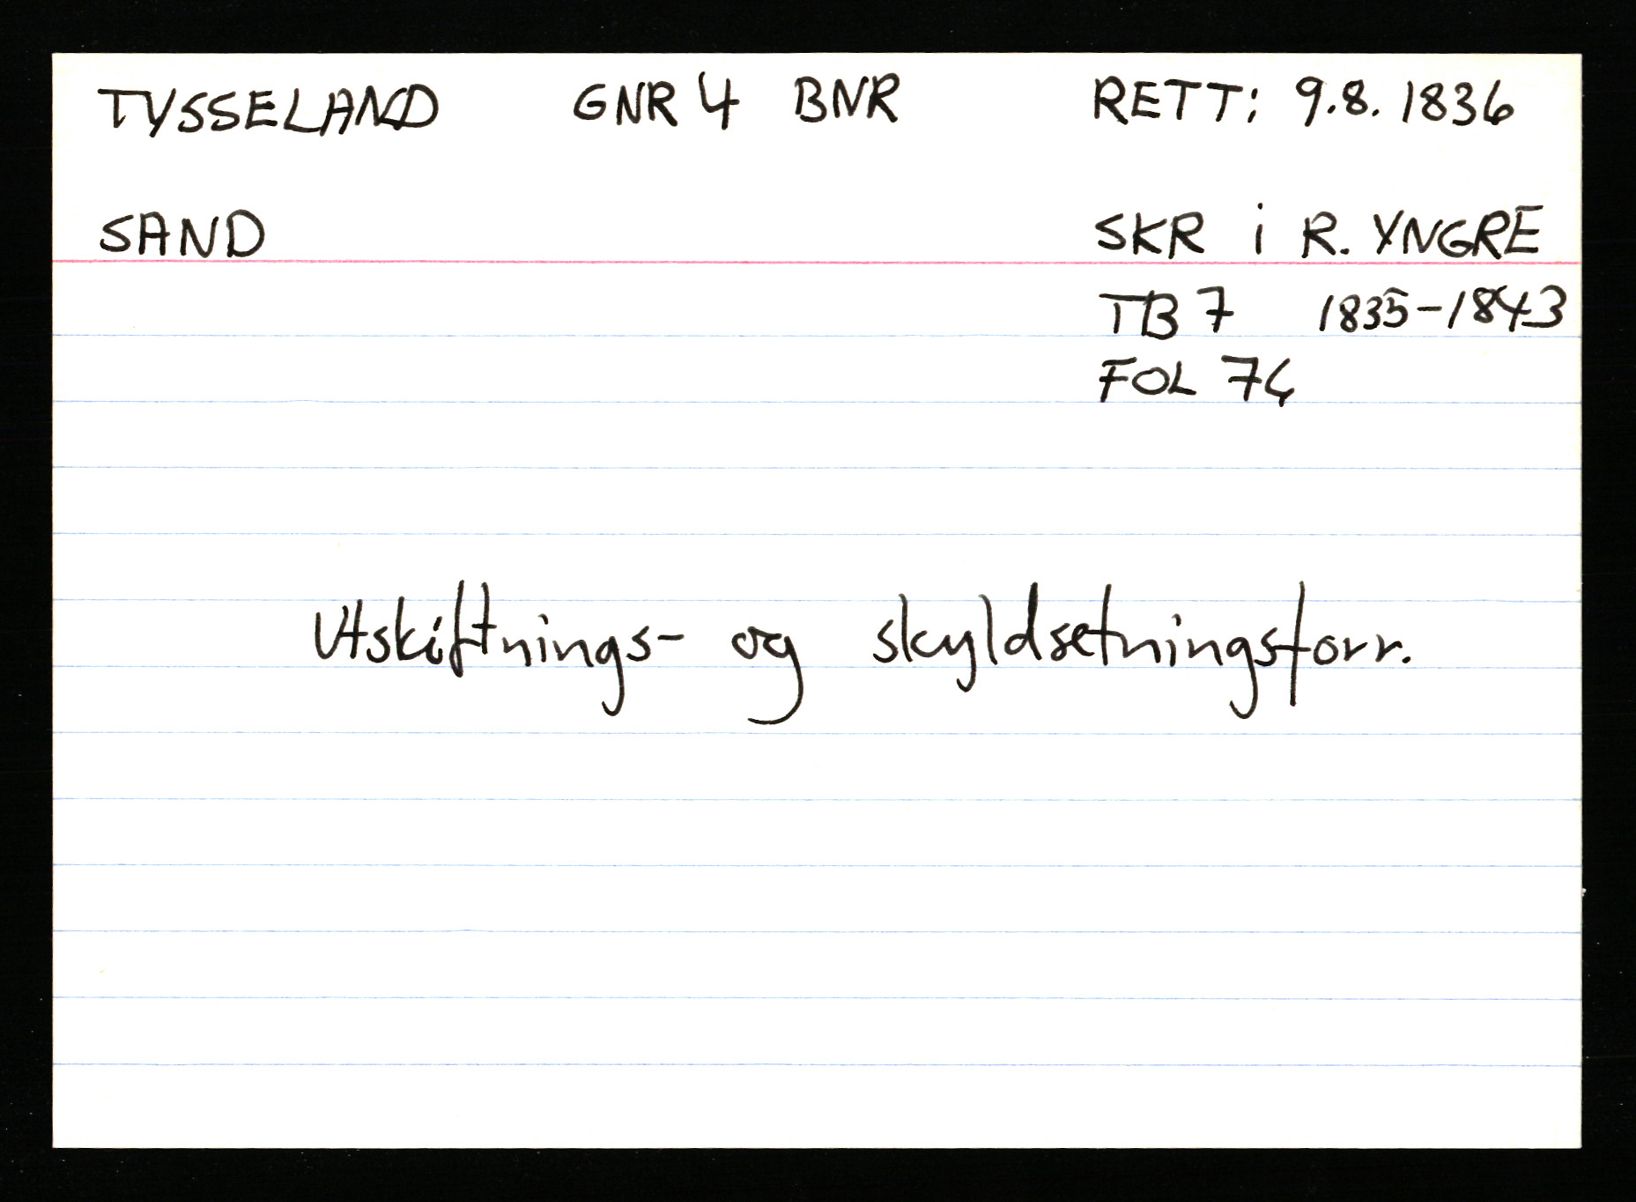 TYSSELAND GNR 4 BNR RETT: 9.8.1836
SAND SKR i R. YNGRE
TB 7 1835-1843
FOL 74
Utskiftnings- og skyldsetningsforr.